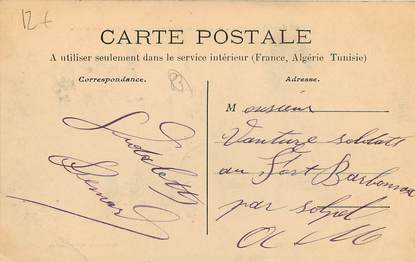 12 f
CARTE POSTALE
A utiliser seulement dans le service intérieur (France, Algérie Tunisie)
Correspondance.
Adresse.
83
Monsieur
Vanture soldats
au Fort Barbonnex
par sospel
A M